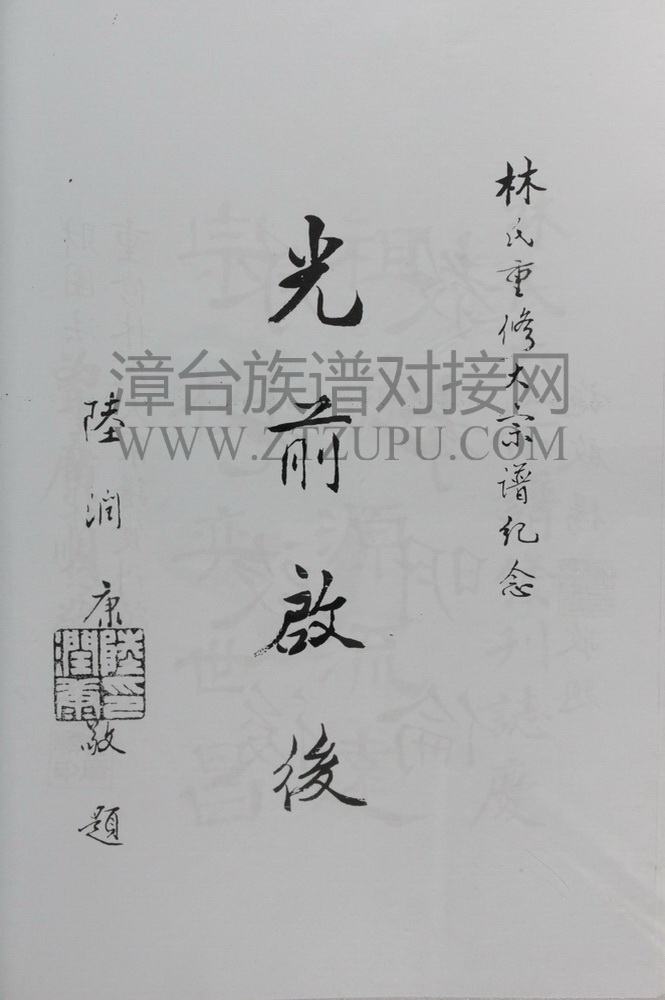 林氏重修大宗譜紀念
光前啟後
陸潤康敬題
陸潤康印
漳台族谱对接网
WWW.ZTZUPU.COM